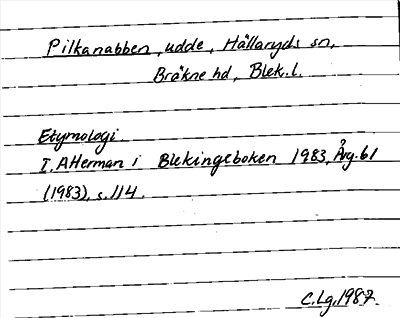 Pilkanabben, udde, Hällaryds sn,
Bräkne hd, Blek.l.
Etymologi
I. Atterman i Blekingeboken 1983, Årg. 61
(1983), s. 114.
C.Lg. 1987.